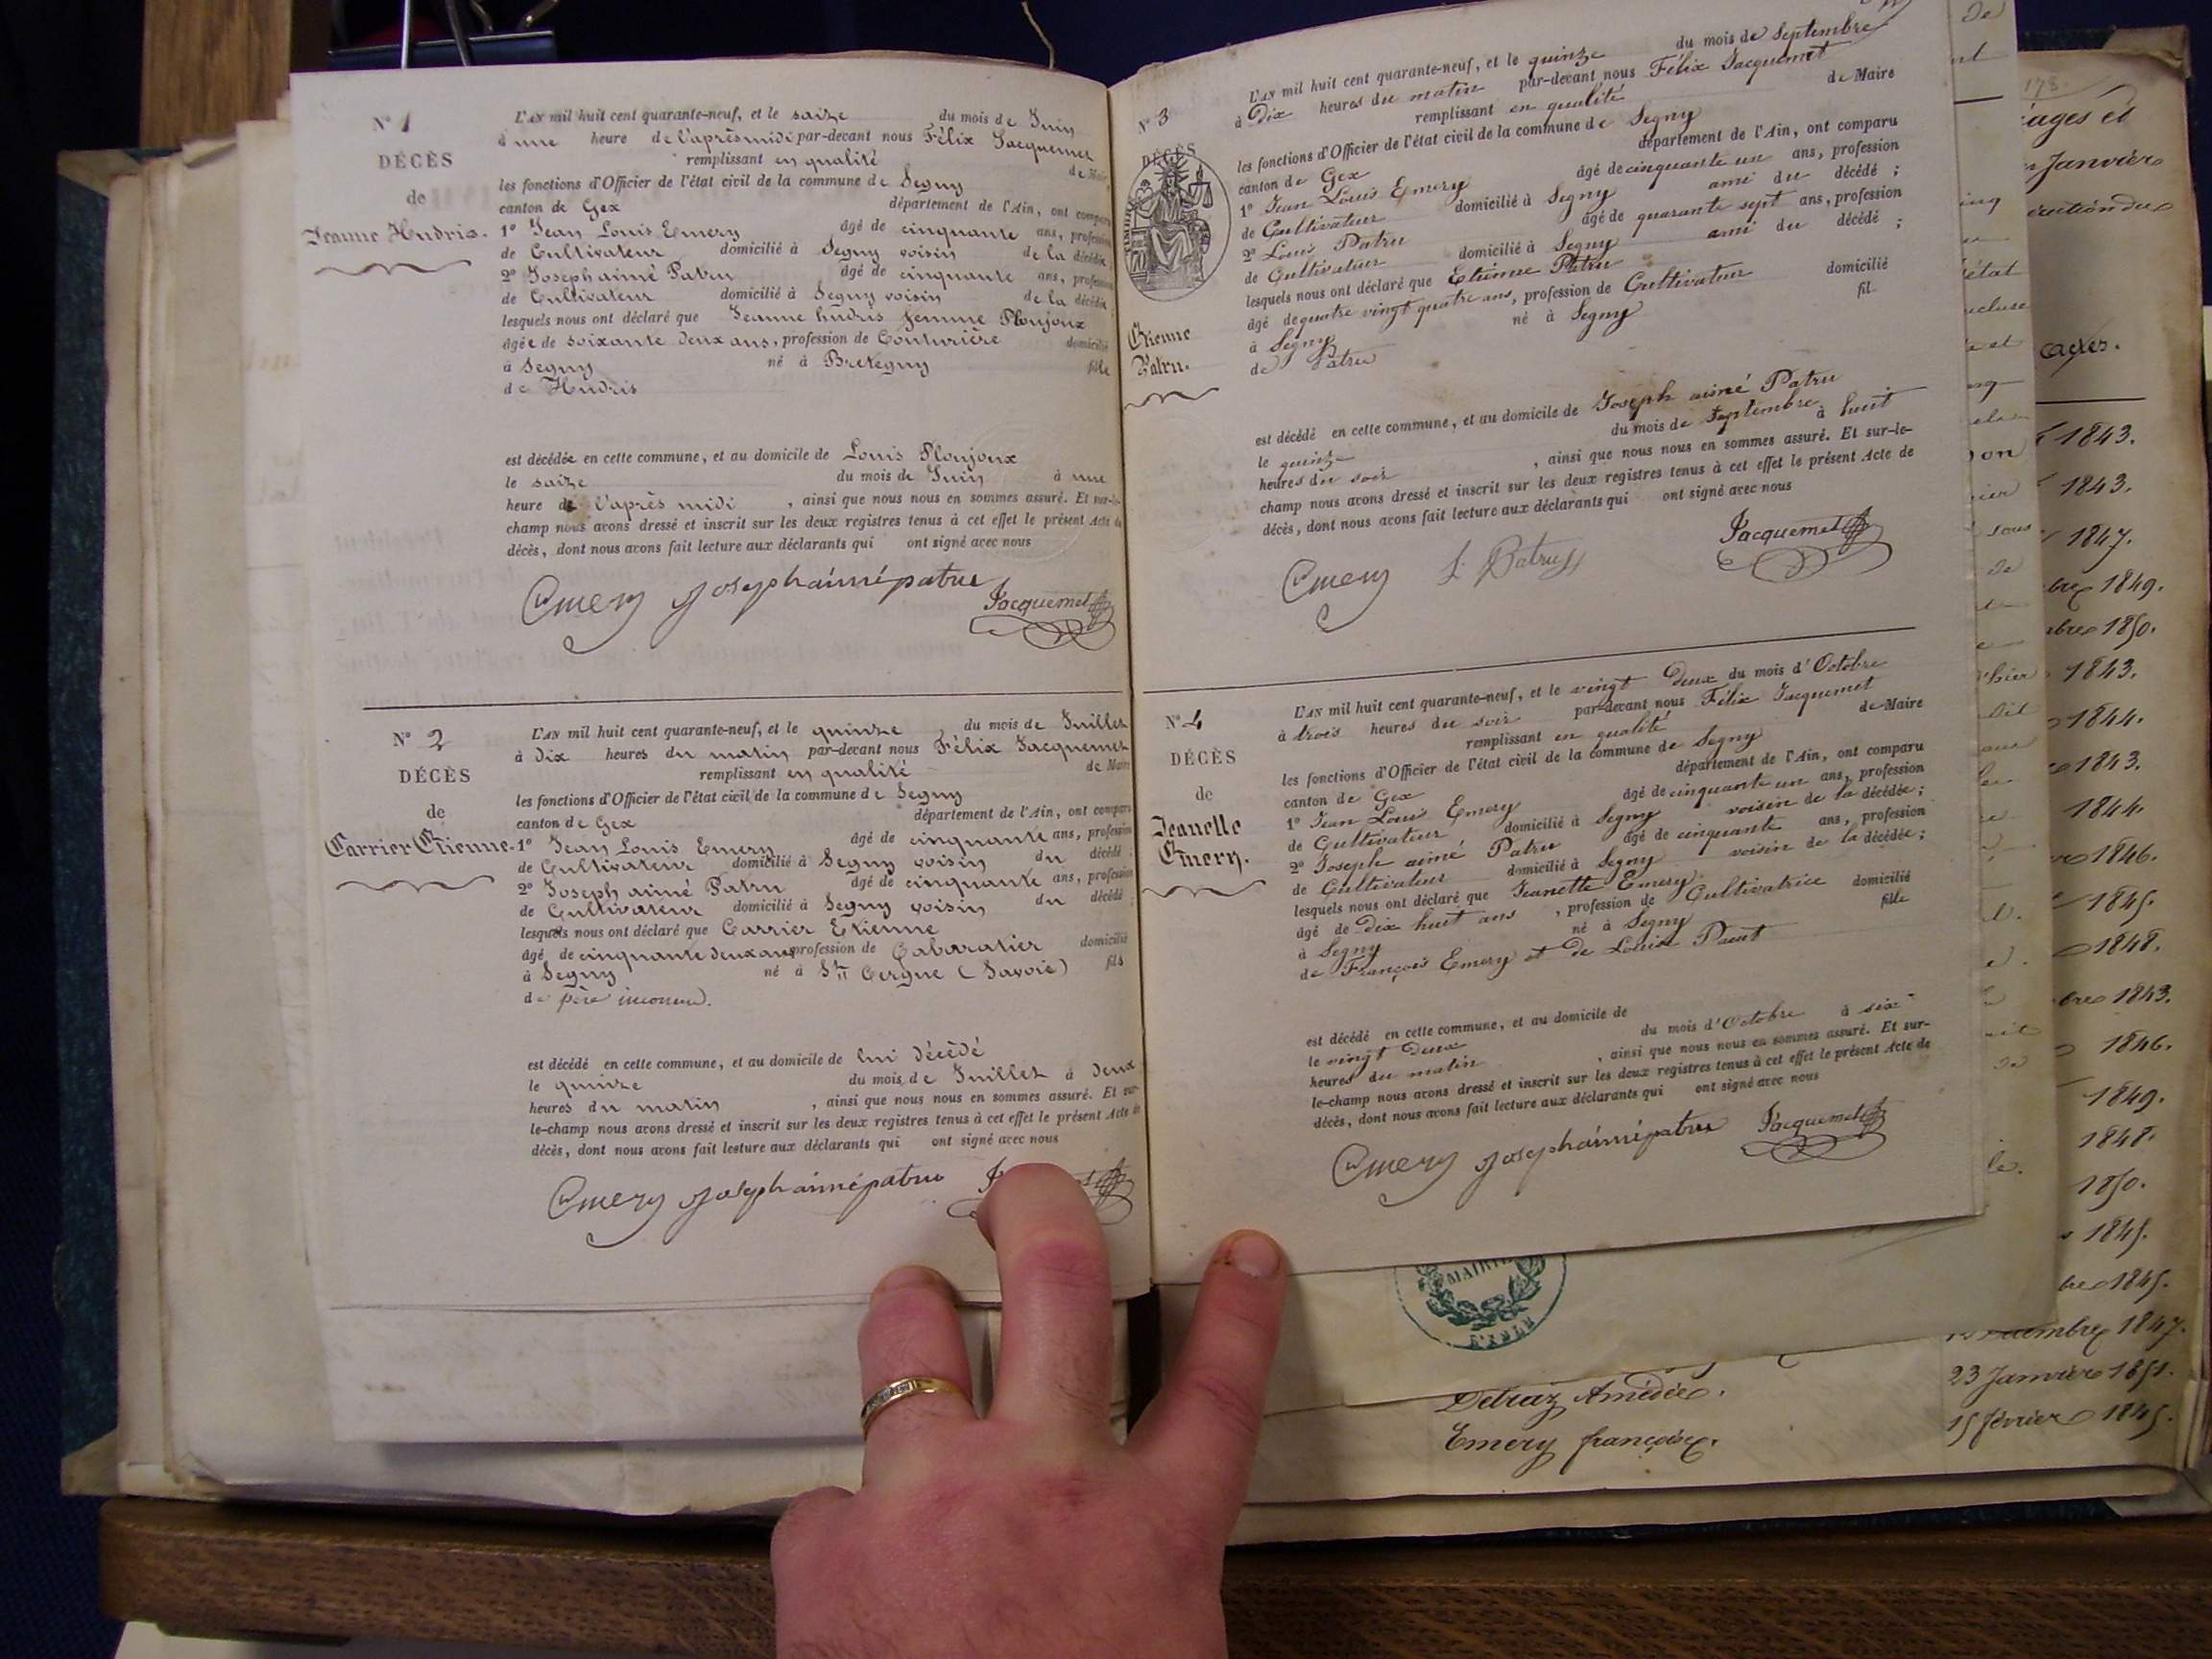 N° 1
DÉCÈS
de
Jeanne Hudris.
L'AN mil huit cent quarante-neuf, et le saize du mois de Juin
à une heure de l'aprèsmidi par-devant nous Félix Jacquemet
remplissant en qualité de Maire
les fonctions d'Officier de l'état civil de la commune de Segny
canton de Gex département de l'Ain, ont comparu
1° Jean Louis Emery âgé de cinquante ans, profession
de Cultivateur domicilié à Segny voisin de la décédée
2° Joseph aimé Patru âgé de cinquante ans, profession
de Cultivateur domicilié à Segny voisin de la décédée
lesquels nous ont déclaré que Jeanne hudris femme Ploujoux
âgée de soixante deux ans, profession de Couturière domicilié
à Segny né à Bretegny fille
de Hudris
est décédée en cette commune, et au domicile de Louis Ploujoux
le saize du mois de Juin à une
heure de l'après midi , ainsi que nous nous en sommes assuré. Et sur-le-
champ nous avons dressé et inscrit sur les deux registres tenus à cet effet le présent Acte de
décès, dont nous avons fait lecture aux déclarants qui ont signé avec nous
Emery josephaimépatru Jacquemet
N° 2
DÉCÈS
de
Carrier Etienne.
L'AN mil huit cent quarante-neuf, et le quinze du mois de Juillet
à dix heures du matin par-devant nous Félix Jacquemet
remplissant en qualité de Maire
les fonctions d'Officier de l'état civil de la commune de Segny
canton de Gex département de l'Ain, ont comparu
1° Jean Louis Emery âgé de cinquante ans, profession
de Cultivateur domicilié à Segny voisin du décédé ;
2° Joseph aimé Patru âgé de cinquante ans, profession
de Cultivateur domicilié à Segny voisin du décédé ;
lesquels nous ont déclaré que Carrier Etienne
âgé de cinquante deux ans profession de Cabaratier domicilié
à Segny né à St Cergue (Savoie) fils
de père inconnu.
est décédé en cette commune, et au domicile de lui décédé
le quinze du mois de Juillet à deux
heures du matin , ainsi que nous nous en sommes assuré. Et sur-
le-champ nous avons dressé et inscrit sur les deux registres tenus à cet effet le présent Acte de
décès, dont nous avons fait lesture aux déclarants qui ont signé avec nous
Emery josephaimépatru
N° 3
DÉCÈS
Etienne
Patru.
L'AN mil huit cent quarante-neuf, et le quinze du mois de Septembre
à Dix heures du matin par-devant nous Félix Jacquemet
remplissant en qualité de Maire
les fonctions d'Officier de l'état civil de la commune de Segny
canton de Gex département de l'Ain, ont comparu
1° Jean Louis Emery âgé de cinquante un ans, profession
de Cultivateur domicilié à Segny ami du décédé ;
2° Louis Patru âgé de quarante sept ans, profession
de Cultivateur domicilié à Segny ami du décédé ;
lesquels nous ont déclaré que Etienne Patru
âgé de quatre vingt quatre ans, profession de Cultivateur domicilié
à Segny né à Segny fil
de Patru
est décédé en cette commune, et au domicile de Joseph aimé Patru
le quinze du mois de Septembre à huit
heures du soir , ainsi que nous nous en sommes assuré. Et sur-le-
champ nous avons dressé et inscrit sur les deux registres tenus à cet effet le présent Acte de
décès, dont nous avons fait lecture aux déclarants qui ont signé avec nous
Emery L. Patru Jacquemet
N° 4
DÉCÈS
de
Jeanette
Emery.
L'AN mil huit cent quarante-neuf, et le vingt Deux du mois d'Octobre
à trois heures du soir par-devant nous Félix Jacquemet
remplissant en qualité de Maire
les fonctions d'Officier de l'état civil de la commune de Segny
canton de Gex département de l'Ain, ont comparu
1° Jean Louis Emery âgé de cinquante un ans, profession
de Cultivateur domicilié à Segny voisin de la décédée ;
2° Joseph aimé Patru âgé de cinquante ans, profession
de Cultivateur domicilié à Segny voisin de la décédée ;
lesquels nous ont déclaré que Jeanette Emery
âgé de Dix huit ans , profession de Cultivatrice domicilié
à Segny né à Segny fille
de François Emery et de Louise
est décédé en cette commune, et au domicile de
le vingt Deux du mois d'Octobre à six
heures du matin , ainsi que nous nous en sommes assuré. Et sur-
le-champ nous avons dressé et inscrit sur les deux registres tenus à cet effet le présent Acte de
décès, dont nous avons fait lecture aux déclarants qui ont signé avec nous
Emery josephaimépatru Jacquemet
MAIRIE
Detraz Amédée.
Emery françoise.
Janvier
actes.
1843.
1843.
1847.
1849.
1850.
1843.
1844.
1843.
1844.
1846.
1845.
1848.
1843.
1846.
1849.
1848.
1850.
1845.
1845.
1847.
23 Janvier 1851.
15 février 1845.